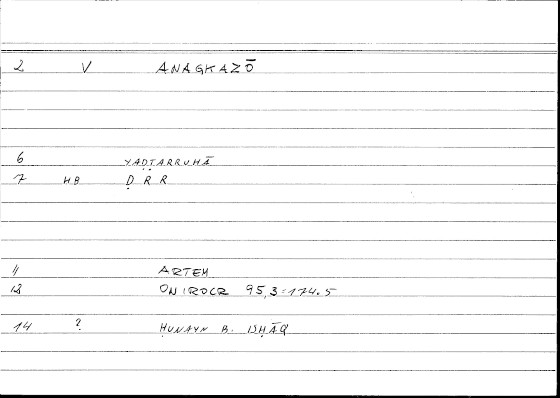 2 V ANAGKAZŌ
6 YAḌṬARRUHĀ
7 HB Ḍ R R
11 ARTEM.
12 ONIROCR 95,3=174.5
14 ? ḤUNAYN B. ISḤĀQ